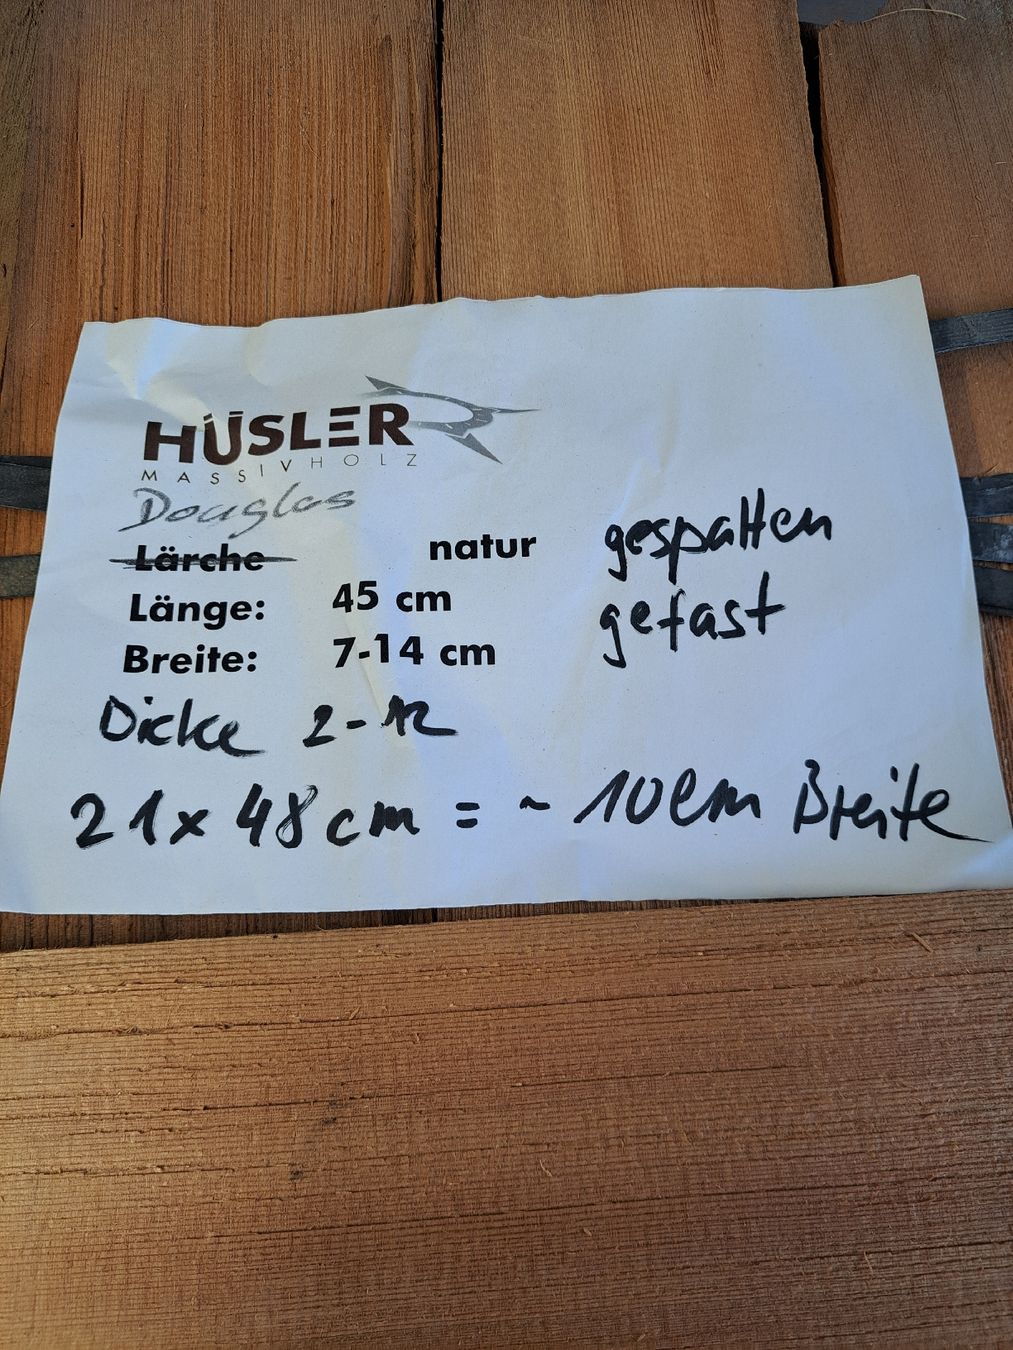 HÜSLER
MASSIVHOLZ
Douglas
Lärche natur gespalten
Länge: 45 cm gefast
Breite: 7-14 cm
Dicke 2-12
21x48cm = ~ 10cm Breite